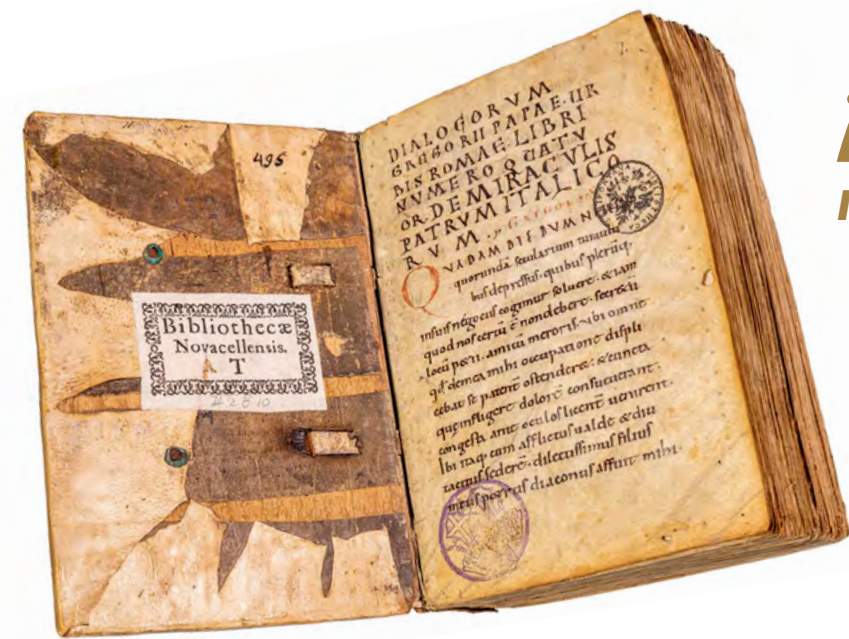 495
Bibliothecæ
Novacellensis.
T
DIALOGORVM
GREGORII PAPAE·UR
BIS ROMAE·LIBRI
NUMERO QUATU
OR·DE MIRACVLIS
PATRVM ITALICO
RVM·
QVADAM DIE DUM N
quorundā secularium tumulti
bus depressus·quibus plerūq;
insuis negociis cogimur soluere·&iam
quod nos certū ē non debere·secretū
locū petii·amicū meroris·ubi omne
qd' demea mihi occupatione displi
cebat se patent ostendere·&cuncta
que infligere dolorē consueuerant·
congesta ante oculos licent uenirent·
Ibi itaq; cum afflictus ualde &diu
tacitus sederē·dilectissimus filius
meus petrus diaconus affuit mihi·